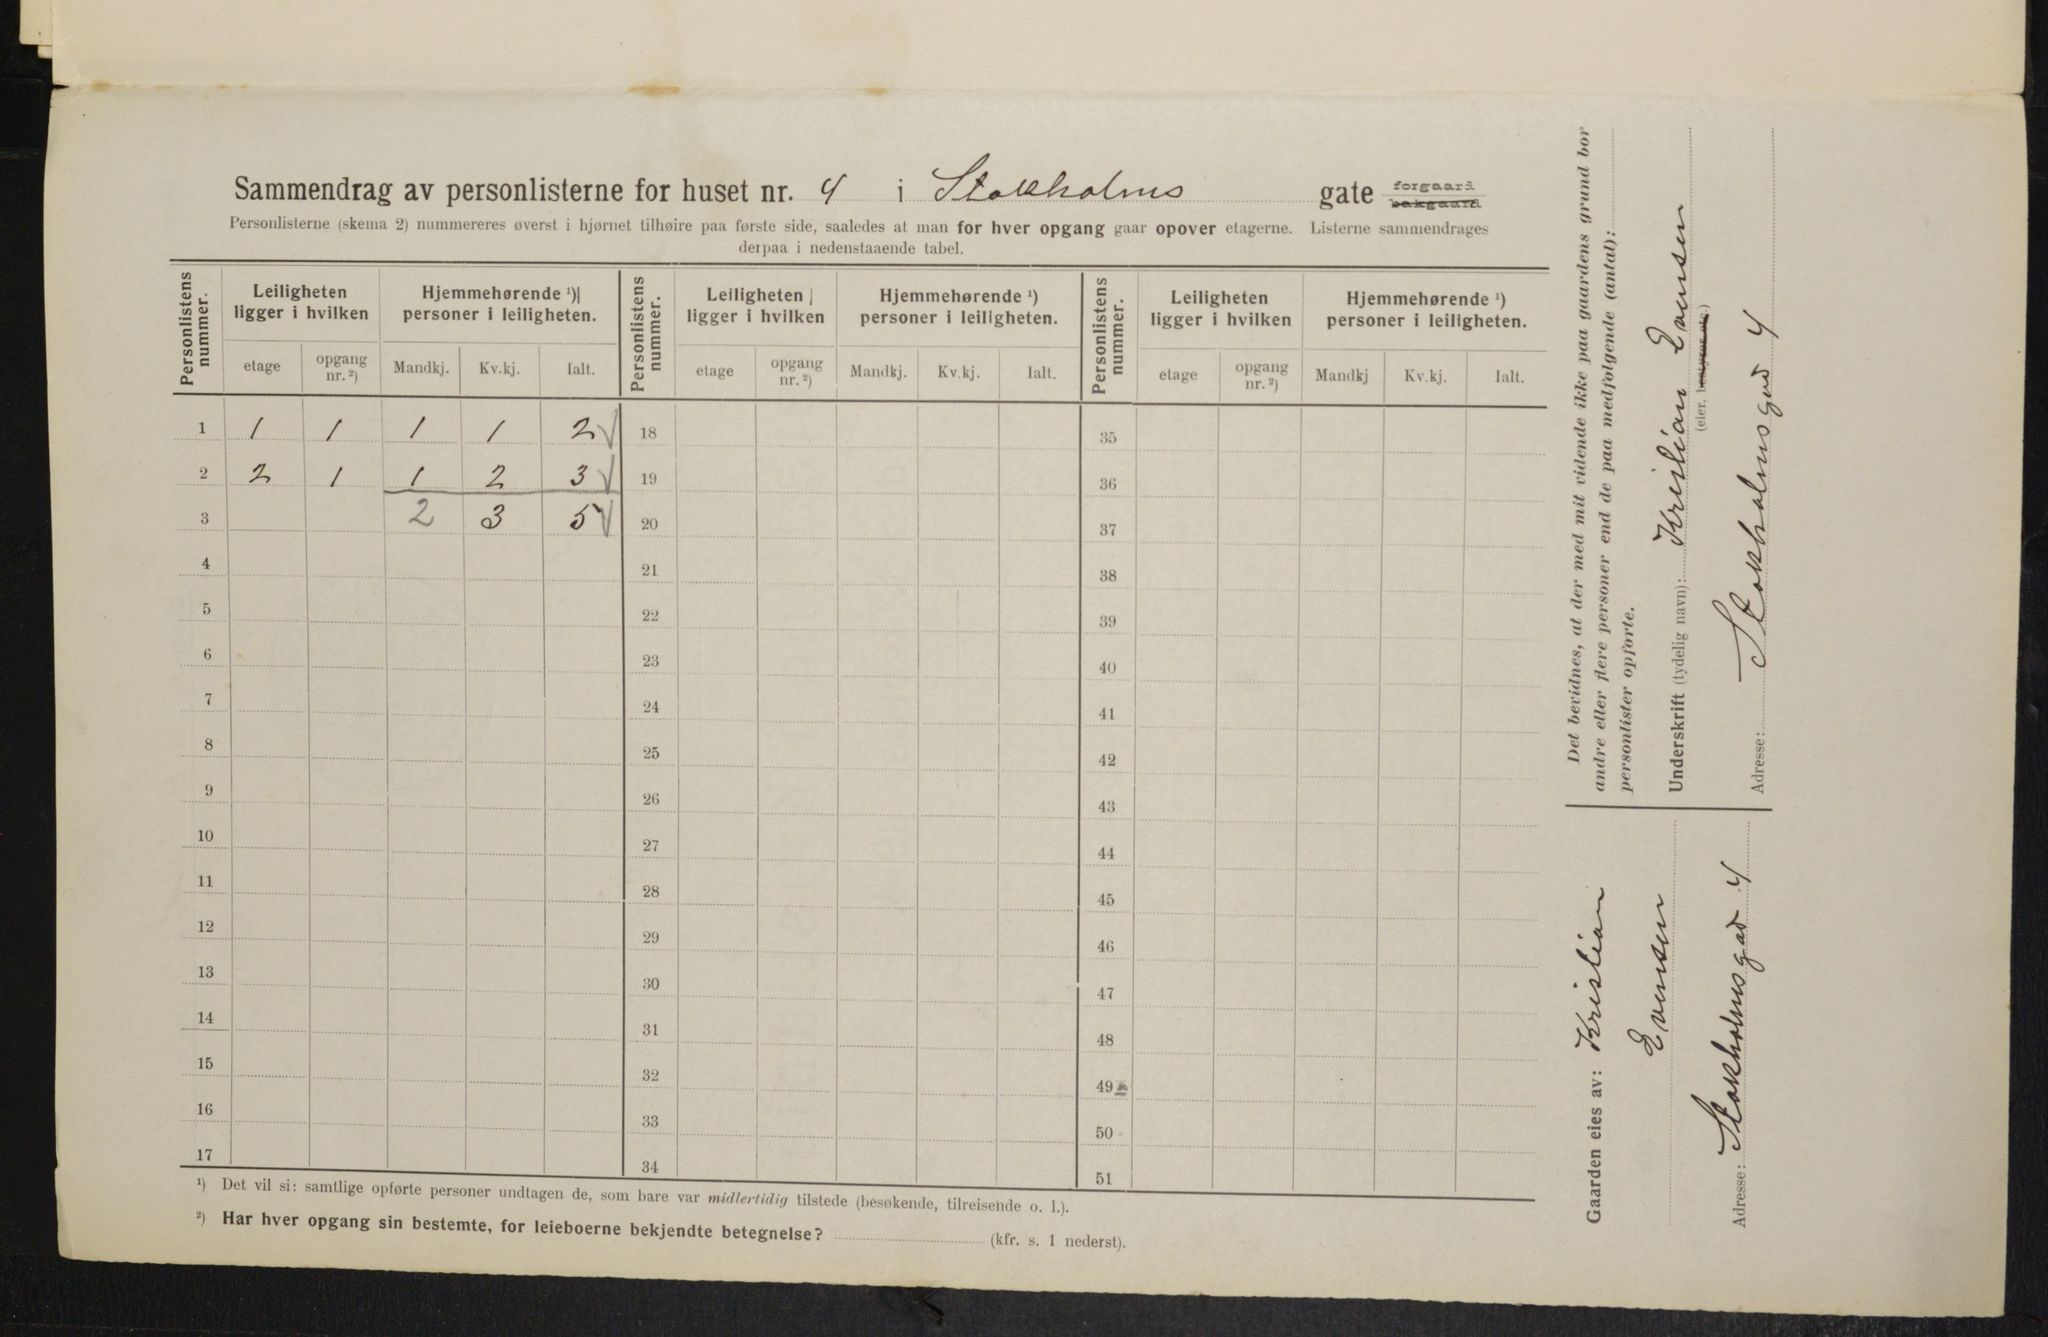 Sammendrag av personlisterne for huset nr. 4 i Stokholms gate forgaard bakgaard
Personlisterne (skema 2) nummereres øverst i hjørnet tilhøire paa første side, saaledes at man for hver opgang gaar opover etagerne. Listerne sammendrages
derpaa i nedenstaaende tabel.
Personlistens nummer. Leiligheten ligger i hvilken Hjemmehørende ¹) personer i leiligheten. Personlistens nummer. Leiligheten ligger i hvilken Hjemmehørende ¹) personer i leiligheten. Personlistens nummer. Leiligheten ligger i hvilken Hjemmehørende ¹) personer i leiligheten.
etage opgang nr. ²) Mandkj. Kv.kj. Ialt. etage opgang nr. ²) Mandkj. Kv.kj. Ialt. etage opgang nr. ²) Mandkj Kv.kj. Ialt.
1 1 1 1 1 2 18 35
2 2 1 1 2 3 19 36
3 2 3 5 20 37
4 21 38
5 22 39
6 23 40
7 24 41
8 25 42
9 26 43
10 27 44
11 28 45
12 29 46
13 30 47
14 31 48
15 32 49
16 33 50
17 34 51
¹) Det vil si: samtlige opførte personer undtagen de, som bare var midlertidig tilstede (besøkende, tilreisende o. l.).
²) Har hver opgang sin bestemte, for leieboerne bekjendte betegnelse? (kfr. s. 1 nederst).
Det bevidnes, at der med mit vidende ikke paa gaardens grund bor
andre eller flere personer end de paa medfølgende (antal):
personlister opførte.
Underskrift (tydelig navn): Kristian Evensen
(eier,
Adresse: Stokholmsgad 4
Gaarden eies av: Kristian
Evensen
Adresse: Stokholmsgad 4